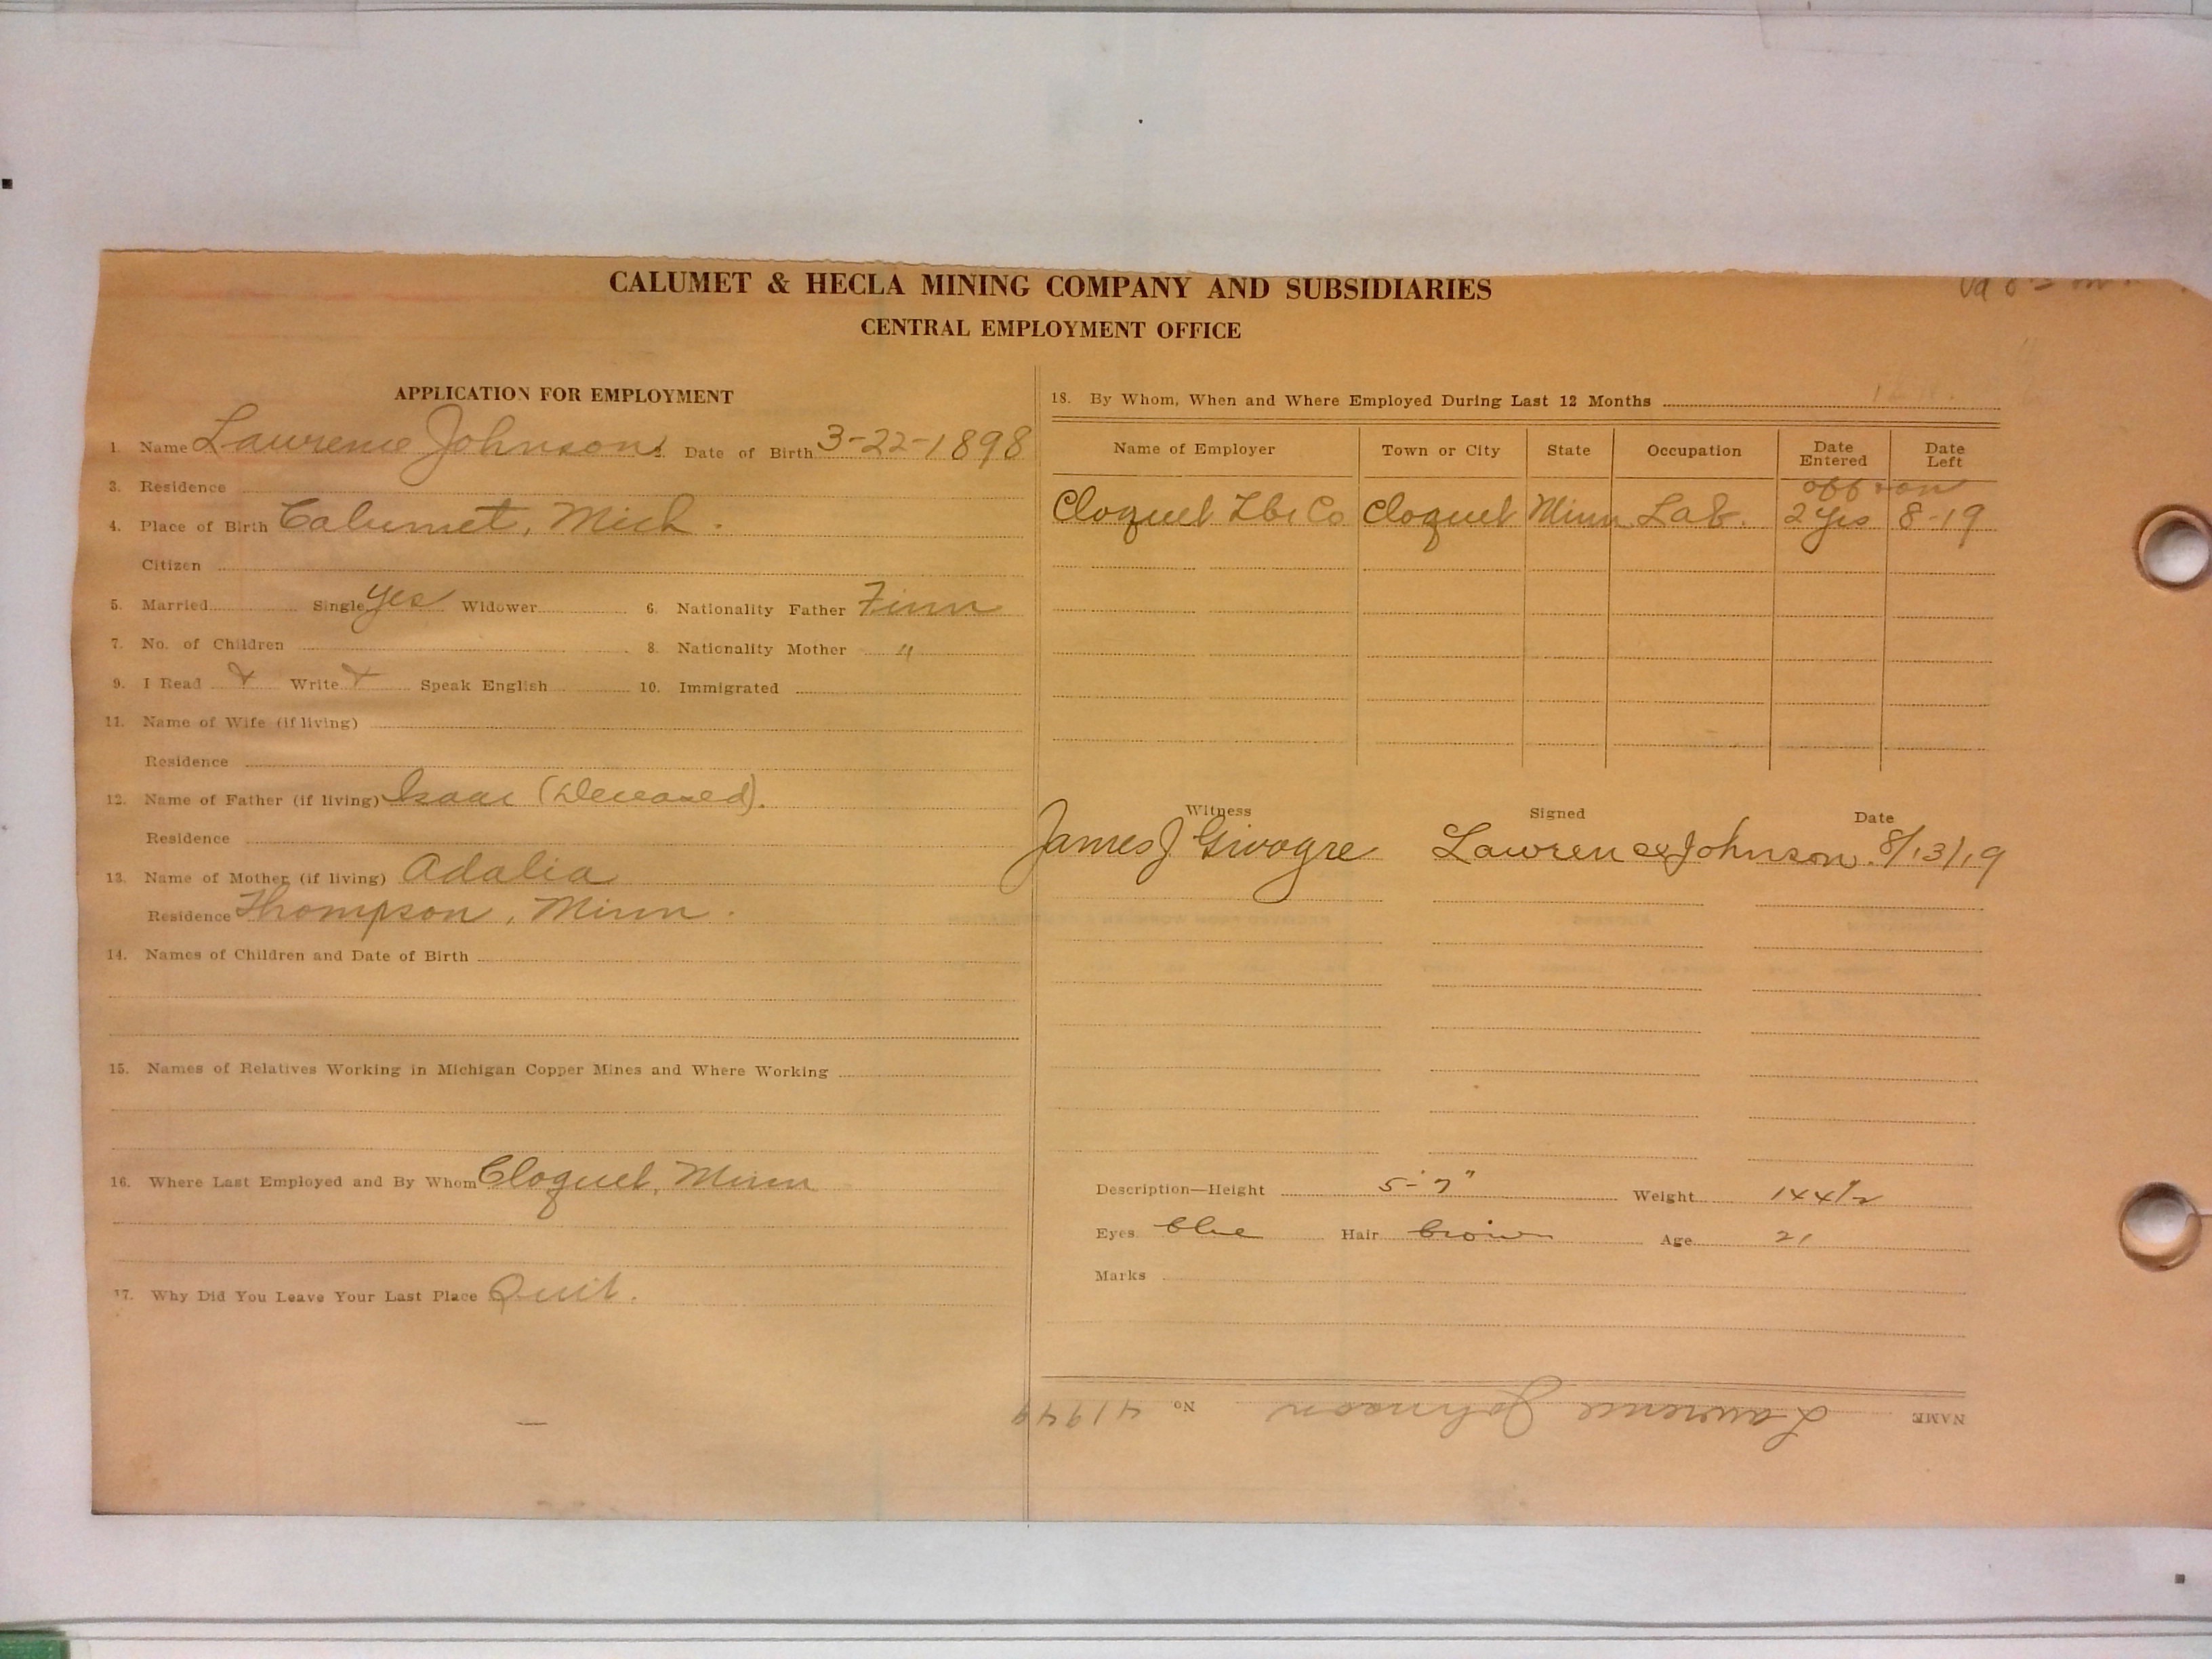 CALUMET & HECLA MINING COMPANY AND SUBSIDIARIES
CENTRAL EMPLOYMENT OFFICE
APPLICATION FOR EMPLOYMENT
1. Name Lawrence Johnson. Date of Birth 3-22-1898
3. Residence
4. Place of Birth Calumet, Mich.
Citizen
5. Married Single yes Widower 6. Nationality Father Finn
7. No. of Children 8. Nationality Mother "
9. I Read Write Speak English 10. Immigrated
11. Name of Wife (if living)
Residence
12. Name of Father (if living) Isaac (Deceased).
Residence
13. Name of Mother (if living) Adalia
Residence Thompson, Minn.
14. Names of Children and Date of Birth
15. Names of Relatives Working in Michigan Copper Mines and Where Working
16. Where Last Employed and By Whom Cloquet, Minn
17. Why Did You Leave Your Last Place Quit.
18. By Whom, When and Where Employed During Last 12 Months
Name of Employer Town or City State Occupation Date Entered Date Left
off + on
Cloquet Lbr Co Cloquet Minn Lab. 2 yrs 8-19
Witness Signed Date
James J Lawrence Johnson. 8/13/19
Description—Height 5-7" Weight 144 1/2
Eyes blue Hair brown Age 21
Marks
NAME Lawrence Johnson No 41944